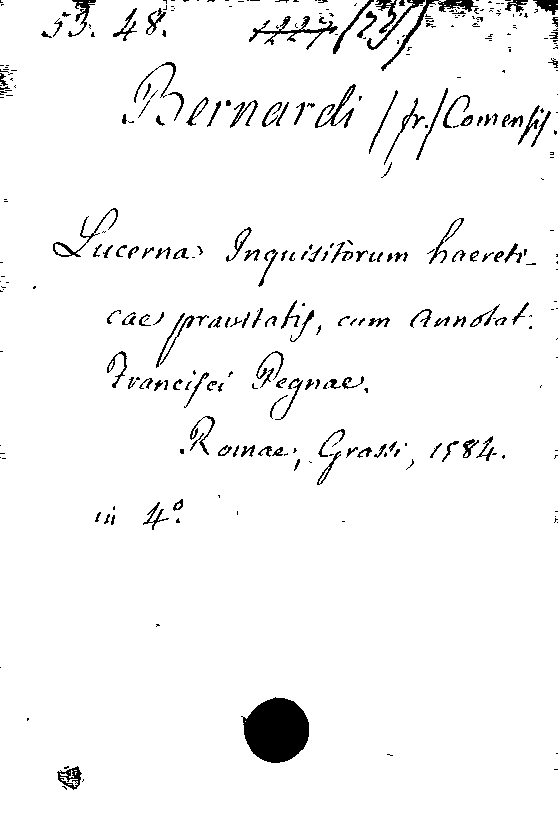 53. 48. 1227 (23)
Bernardi (fr.) Comensis.
Lucerna Inquisitorum haereti-
cae pravitatis, cum Annotat.
Francisci Pegnae.
Romae, Grassi, 1584.
in 4º.